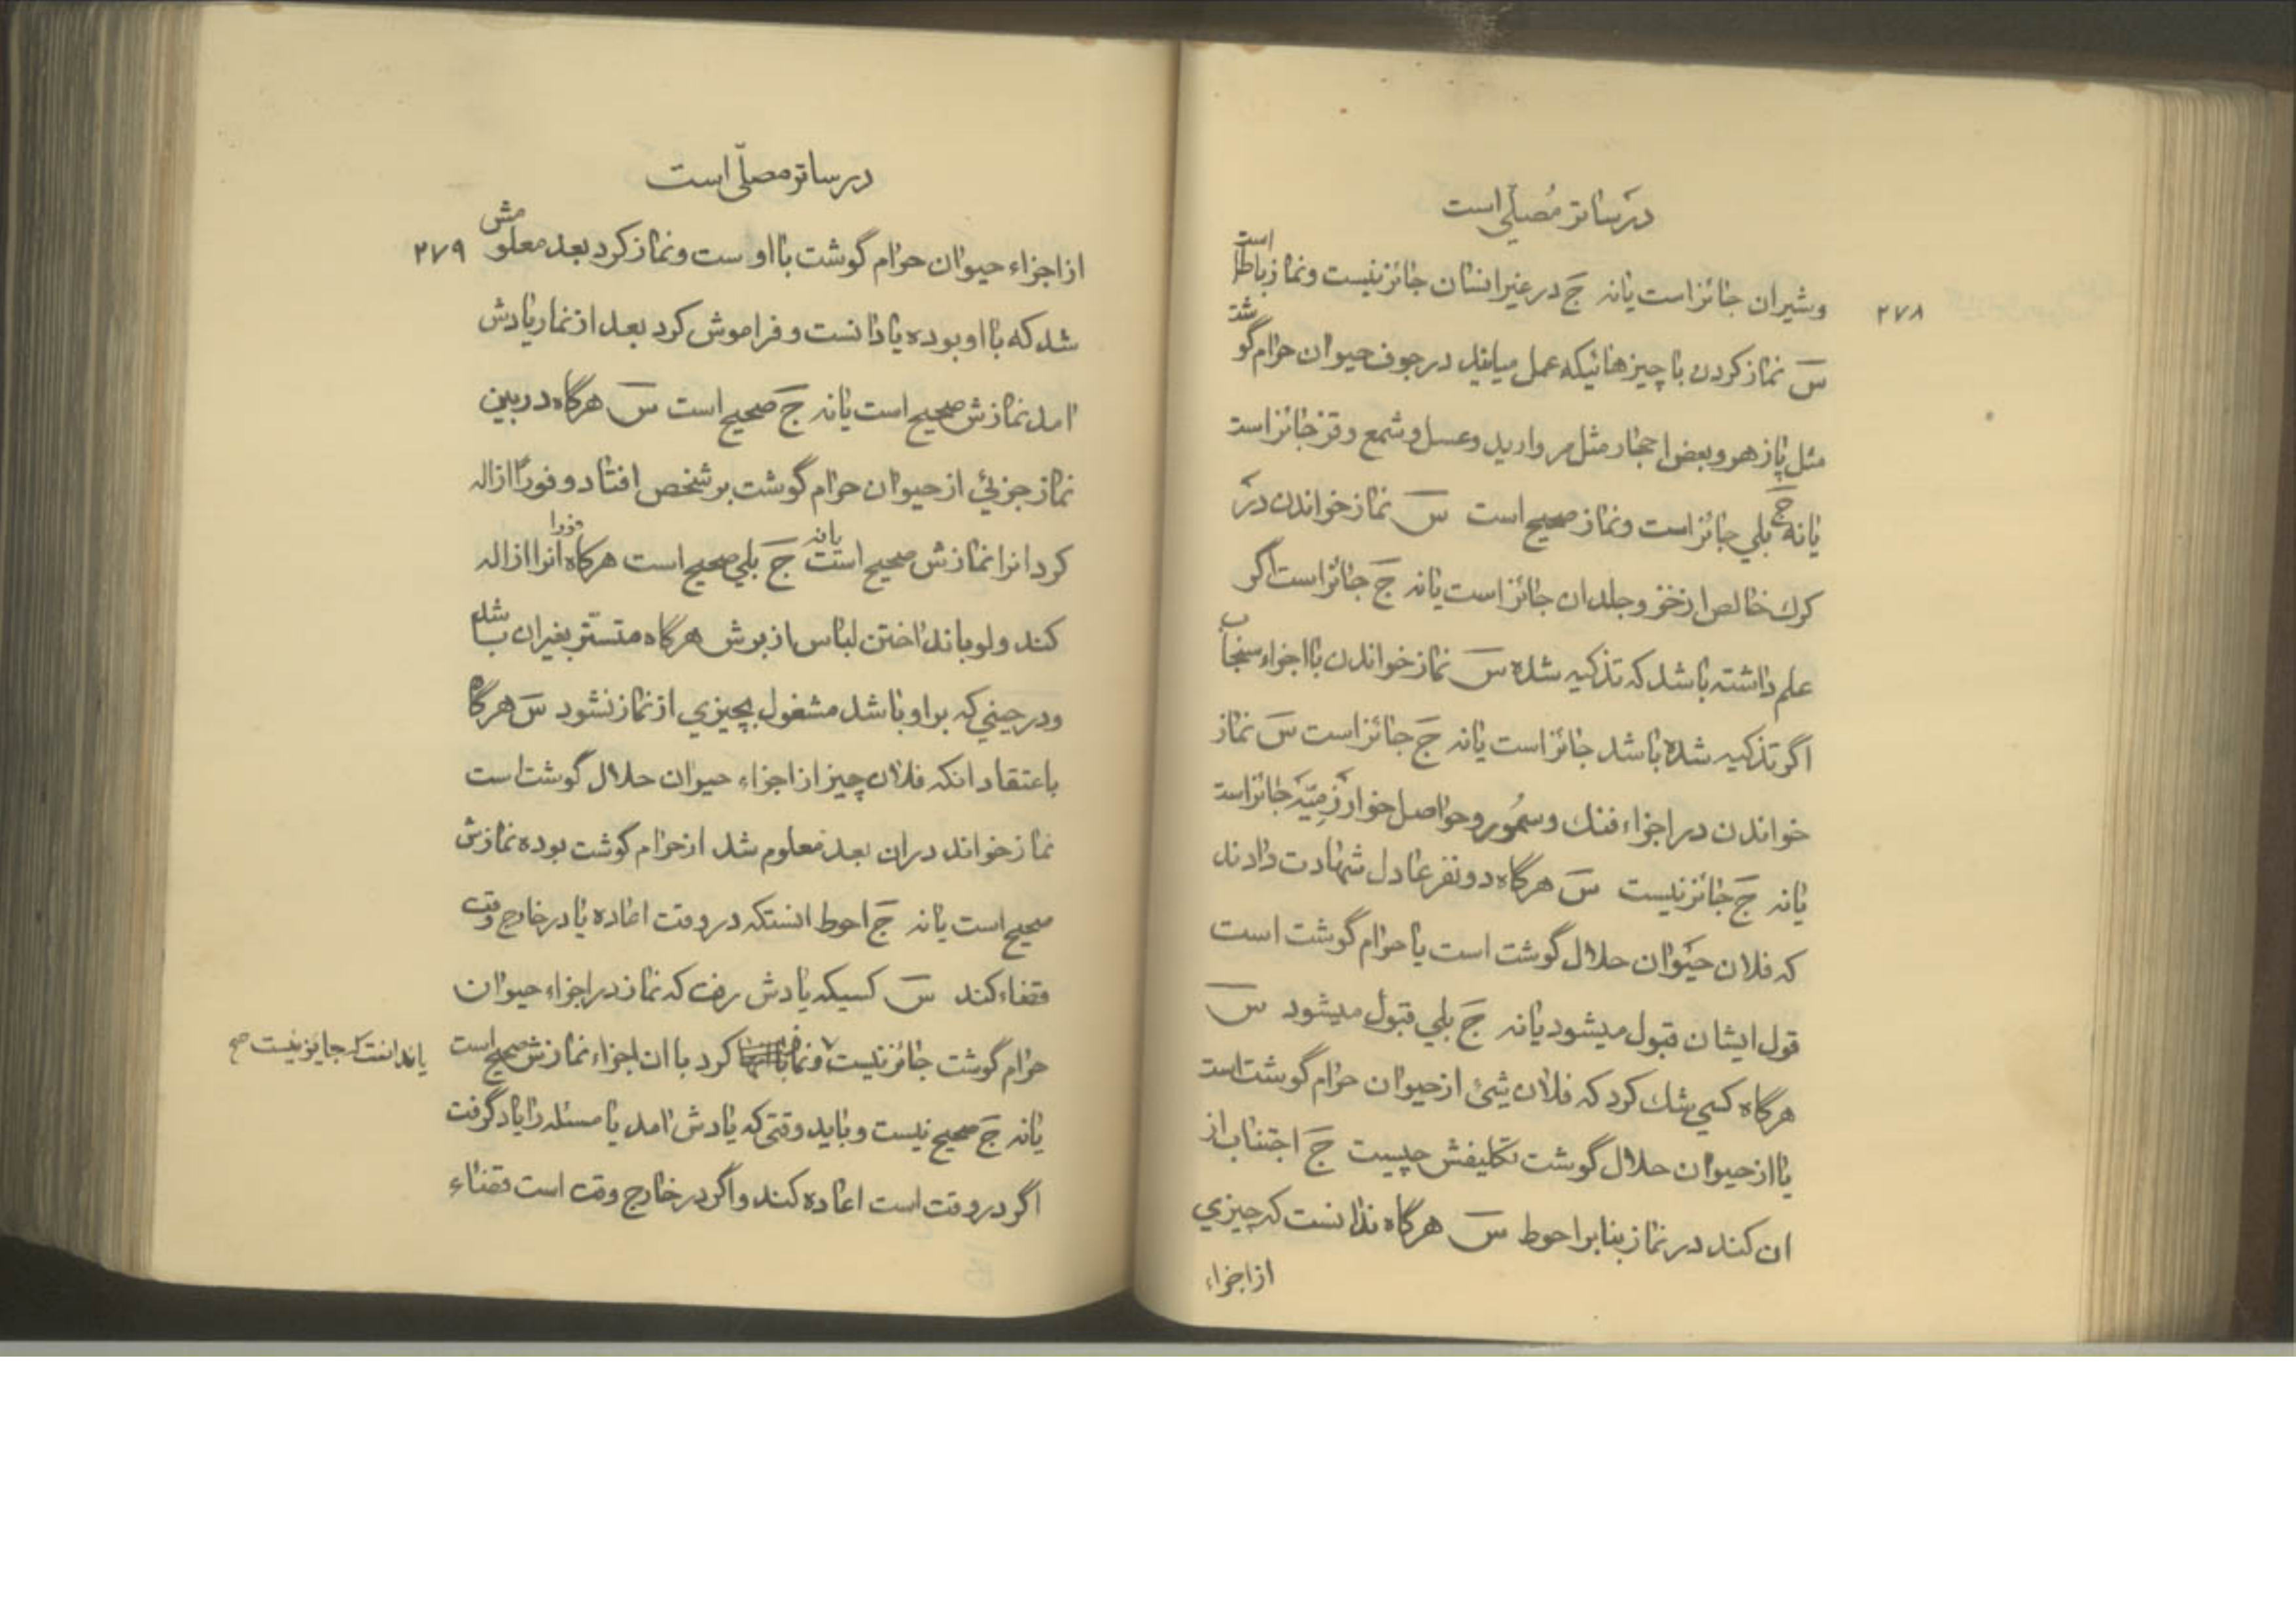 در ساتر مُصلّی است
۲۷۸
وشیران جائز است یا نه جَ در غیر انسان جائز نیست و نماز باطل است
سَ نماز کردن با چیزهائیکه عمل میاید در جوف حیوان حرام گوشت
مثل پازهر و بعض احجار مثل مروارید و عسل و شمع و قز جائز است
یا نه جَ بلی جائز است و نماز صحیح است سَ نماز خواندن در
کرک خالص از خز و جلد ان جائز است یا نه جَ جائز است اگر
علم داشته باشد که تذکیه شده سَ نماز خواندن با اجزاء سنجاب
اگر تذکیه شده باشد جائز است یا نه جَ جائز است سَ نماز
خواندن در اجزاء فنک و سمُور و حواصل خوارَزمِیّه جائز است
یا نه جَ جائز نیست سَ هرگاه دو نفر عادل شهادت دادند
که فلان حیَوان حلال گوشت است یا حرام گوشت است
قول ایشان قبول میشود یا نه جَ بلی قبول میشود سَ
هرگاه کسی شک کرد که فلان شیئ از حیوان حرام گوشت است
یا از حیوان حلال گوشت تکلیفش چیست جَ اجتناب از
ان کند در نماز بنا بر احوط سَ هرگاه ندانست که چیزی
از اجزاء
در ساتر مصلّی است
۲۷۹
از اجزاء حیوان حرام گوشت با اوست و نماز کرد بعد معلومش
شد که با او بوده یا دانست و فراموش کرد بعد از نماز یادش
امد نمازش صحیح است یا نه جَ صحیح است سَ هرگاه در بین
نماز جزئی از حیوان حرام گوشت بر شخص افتاد و فوراً ازاله
کرد انرا نمازش صحیح است یا نه جَ بلی صحیح است هرگاه فورا انرا ازاله
کند ولو بانداختن لباس از برش هرگاه متستّر بغیر ان باشد
و در حینی که بر او باشد مشغول بچیزی از نماز نشود سَ هرگاه
باعتقاد انکه فلان چیز از اجزاء حیوان حلال گوشت است
نماز خواند در ان بعد معلوم شد از حرام گوشت بوده نمازش
صحیح است یا نه جَ احوط انستکه در وقت اعاده یا در خارج وقت
قضاء کند سَ کسیکه یادش رفت که نماز در اجزاء حیوان
حرام گوشت جائز نیست و نماز کرد با ان اجزاء نمازش صحیح است
یا ندانست که جایز نیست صح
یا نه جَ صحیح نیست و باید وقتی که یادش امد یا مسئله را یاد گرفت
اگر در وقت است اعاده کند و اگر در خارج وقت است قضاء